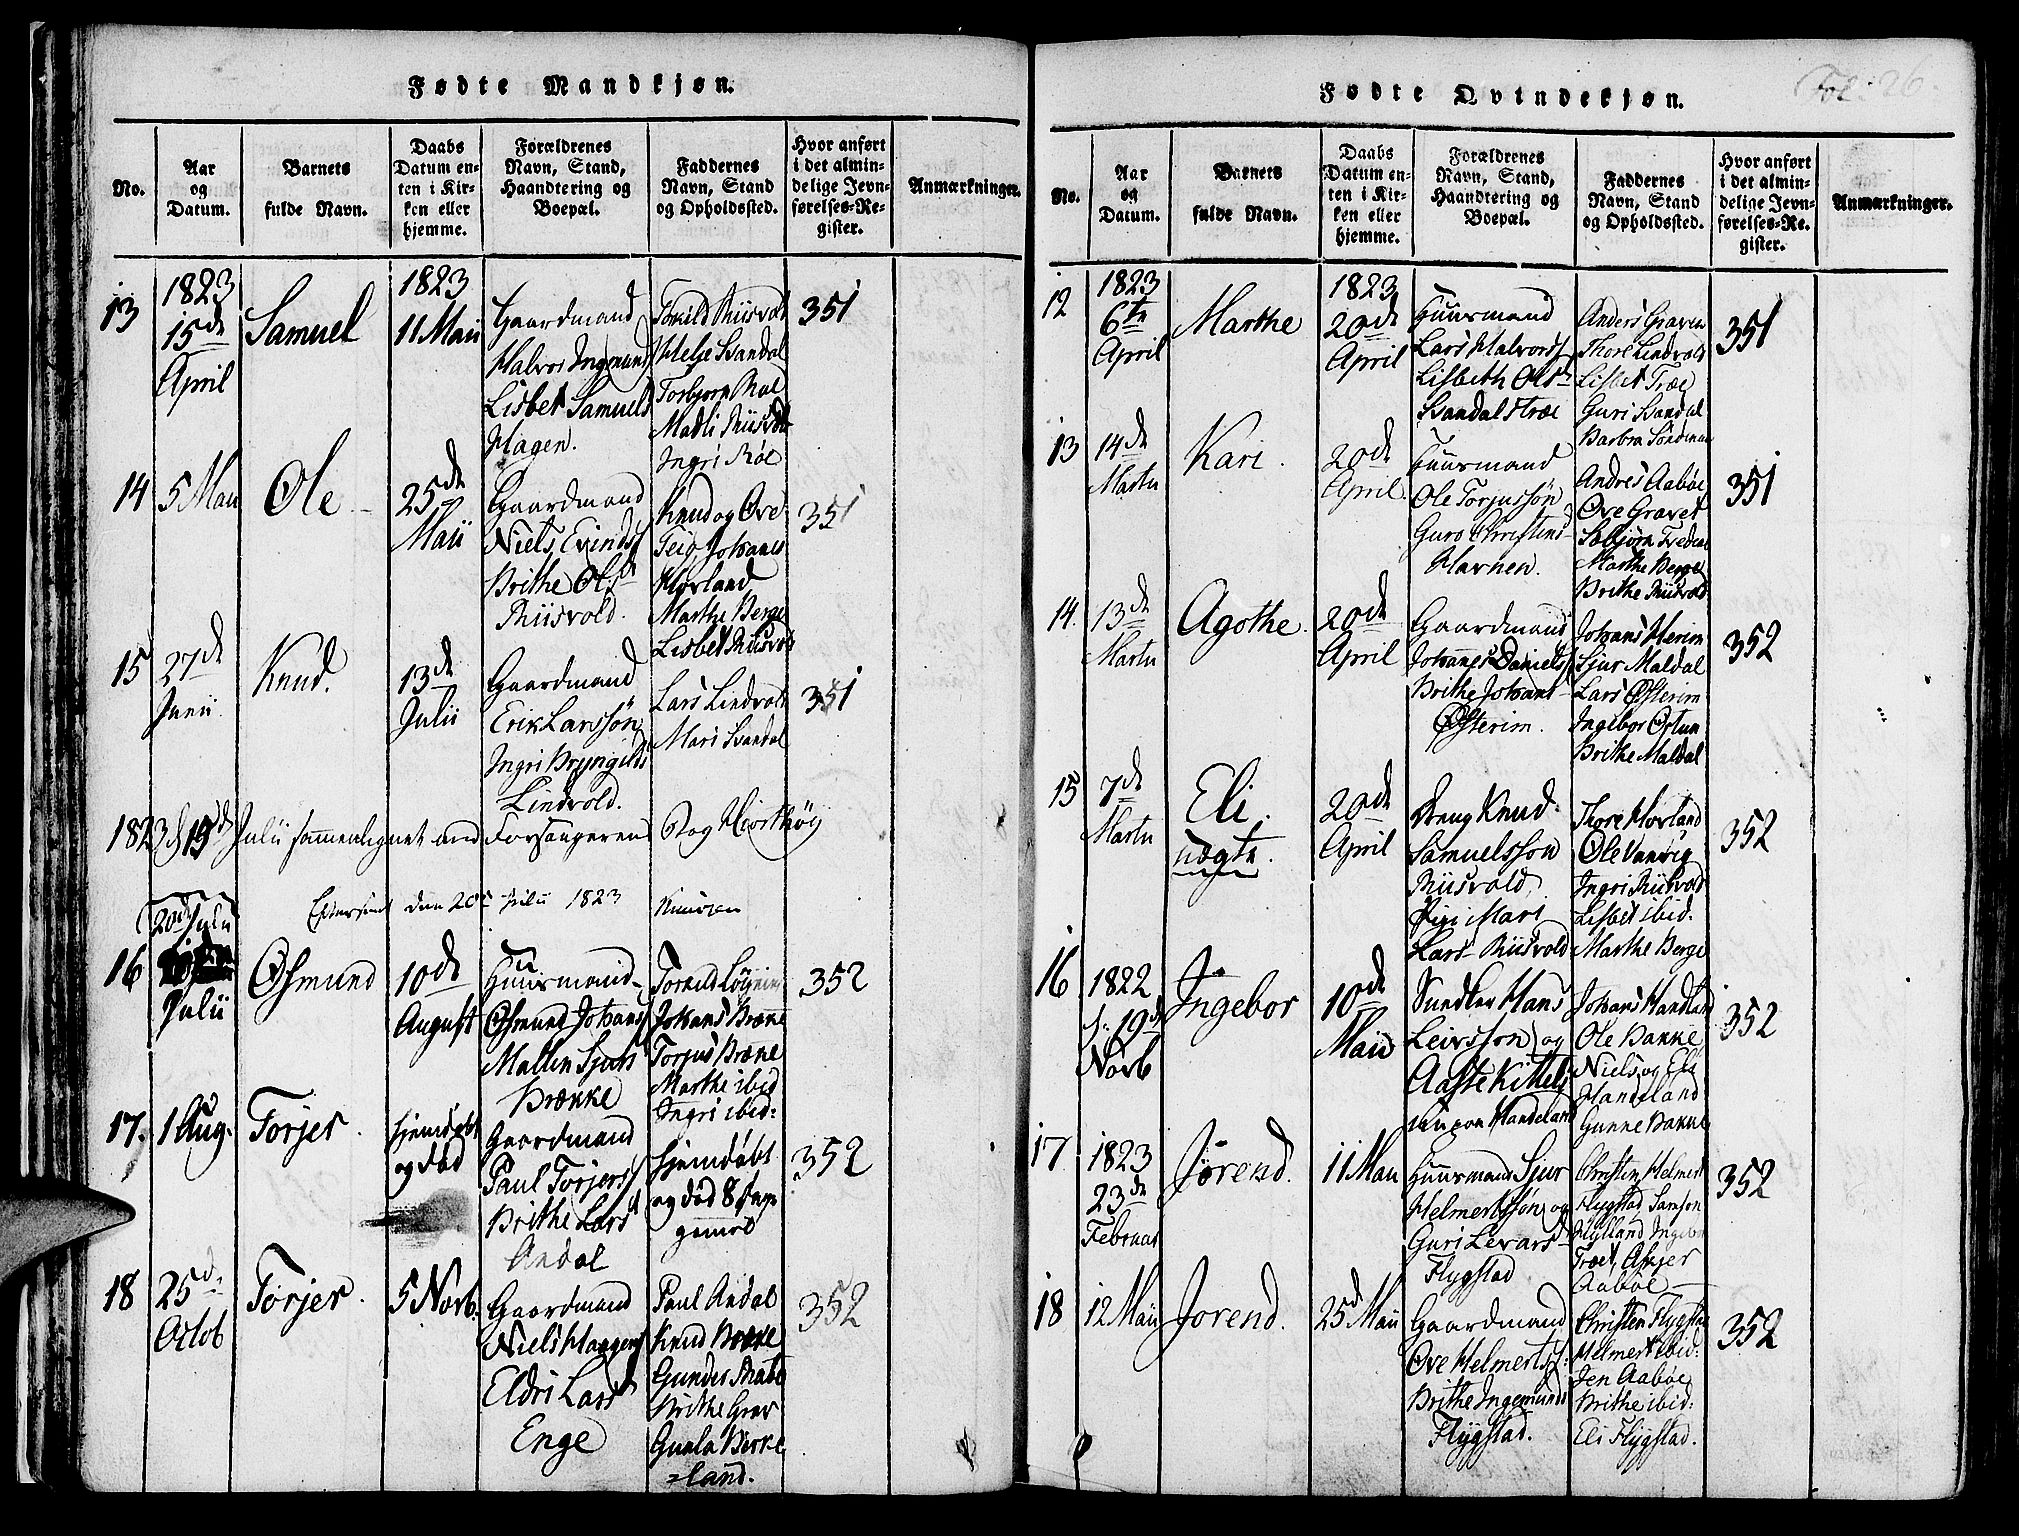 Fødte Mandkjøn.
No.
Aar
og
Datum.
Barnets
fulde Navn.
Daabs
Datum en-
ten i Kir-
ken eller
hjemme.
Forældrenes
Navn, Stand,
Haandtering og
Boepæl.
Faddernes
Navn, Stand
og Opholdssted.
Hvor anført
i det almin-
delige Jevn-
førelses-Re-
gister.
Anmærkninger.
13
1823
15de
April
Samuel
1823
11 Maii
Gaardmand
Halvor Ingmunds
Lisbet Samuels
Hagen.
Helje Svandal
Madli Riisvold
Ingri Røe
351
14
5 Maii
Ole
25de
Maii
Gaardmand
Niels Evinds
Brithe Olsd
Riisvold.
Knud og Ove
Teig, Johanes
Hovland
Marthe Berge
Lisbet Riisvold
351
15
27de
Junii
Knud.
13de
Julii
Gaardmand
Erik Larssøn
Ingri Bryngilds
Lindvold.
Lars Lindvold
Mari Svandal
351
1823 d 15de Julii sammenlignet med Forsangerens Bog Hiorthøy
Efterseet den 20de Julii 1823
16
20de Julii
Julii
Osmund
10de
August
Huusmand
Osmund Johans
Mallin Sjurs
Brække
Johans Brække
Torjus Brække
Marthe ibid
Ingri ibid:
352
17.
1 Aug.
Torjer.
hjemdøbt
og død
Gaardmand
Paul Torjers
Brithe Larsd
Andal
hjemdøbt
og død 8 Dage
gamel
352
18
25de
Octob
Torjer.
5 Novb.
Gaardmand
Niels Haagens
Eldri Larsd
Enge
Paul Andal
Knud Brække
Brithe Grov
Guala Berke
=land.
352
Fol: 26.
Fødte Qvindekjøn.
No.
Aar
og
Datum.
Barnets
fulde Navn.
Daabs
Datum en-
ten i Kir-
ken eller
hjemme.
Forældrenes
Navn, Stand,
Haandtering og
Boepæl.
Faddernes
Navn, Stand
og Opholdssted.
Hvor anført
i det almin-
delige Jevn-
førelses-Re-
gister.
Anmærkninger.
12
1823
6te
April
Marthe
1823
20de
April
Huusmand
Lars Halvors
Lisbeth Olsd
Svandals træe
Anders Graven
Thore Lindvold
Lisbet Træe
Guri Svandal
Barbra Søndenaa
351
13
14de
Martii
Kari.
20de
April.
Huusmand
Ole Torjussøn
Guro Christensd
Havnen.
Andres Aabøe
Ove Gravet
Marthe Berge
Brithe Riisvold
351
14.
13de
Martii
Agothe.
20de
April
Gaardmand
Johannes Daniels
Brithe Johans
Østerim.
Johans Herim
Sjur Maldal
Lars Østerim
Ingebor Østun
Brithe Maldal
352
15
7de
Martii
Eli.
uægte.
20de
April
Dreng Knud
Samuelsson
Riisvold,
Pige Mari
Lars Riisvold
Thore Hovland
Ole Vanvig
Ingri Riisvold
Lisbet ibid.
Marthe Berge
352
16
1822
d. 19de
Novb
Ingebor
10de
Maii
Hans
Leivsson og
Aaste Kittels
Handeland
Johans Handland
Ole Bakke
Niels og Eli
Handeland
Gunne Bakke
352
17
1823
23de
Februar
Jørend.
11 Maii
Huusmand Sjur
Helmertssøn og
Guri Levards
Flygstad
Christen Helmert
Flygstad Samson
Hylland Ingebor
Træet, Asgjer
Aabøe
352
18
12 Maii
Jorend.
25de Maii
Gaardmand
Ove Helmerts:
Brithe Ingemunds
Flygstad.
Christen Flygstad
Helmert ibid:
Jen Aabøe
Brithe ibid:
Eli Flygstad.
352